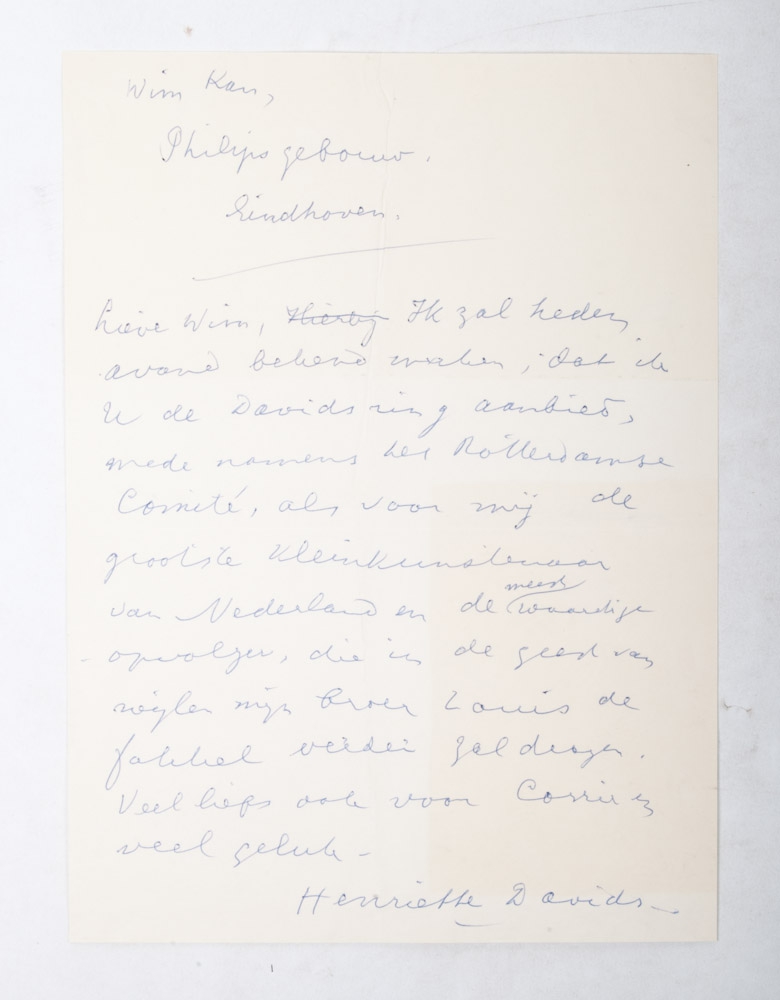 Wim Kan,
Philips gebouw.
Eindhoven.
Lieve Wim, Hierbij Ik zal heden
avond bekend maken, dat ik
U de Davids ring aanbied,
mede namens het Rotterdamse
Comité, als voor mij de
grootste Kleinkunstenaar
van Nederland en de meest waardige
opvolger, die in de geest van
wijlen mijn broer Louis de
fakkel verder zal dragen.
Veel liefs ook voor Corrie en
veel geluk -
Henriette Davids